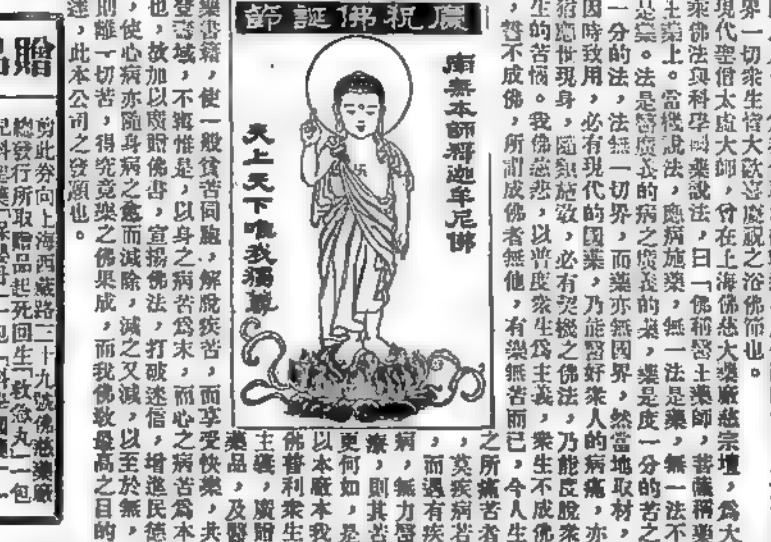 慶祝佛誕節
南無本師釋迦牟尼佛
天上天下唯我獨尊
界一切衆生皆大歡喜慶祝之浴佛節也。
現代聖僧太虛大師，曾在上海佛慈大藥廠慈宗壇，爲大
衆佛法與科學國藥說法，曰「佛稱醫王藥師，菩薩稱藥
王藥上。當機說法，應病施藥，無一法是藥，無一法不
是藥。法是醫廣義的病之廣義的藥，藥是度一分的苦之
一分的法，法無一切界，而藥亦無國界，然當地取材，
因時致用，必有現代的國藥，乃能醫好衆人的病痛，亦
猶應世現身，隨類施敎，必有契機之佛法，乃能度脫衆
生的苦惱。我佛慈悲，以普度衆生爲主義，衆生不成佛
，誓不成佛，所謂成佛者無他，有樂無苦而已，今人生
之所痛苦者
，莫疾病若
，而遇有疾
病，無力醫
療，則其苦
更何如，是
以本廠本我
佛普利衆生
主義，廣贈
藥品，及醫
藥書籍，使一般貧苦同胞，解脫疾苦，而享受快樂，共
登壽域，不獨惟是，以身之病苦爲末，而心之病苦爲本
也，故加以廣贈佛書，宣揚佛法，打破迷信，增進民德
，使心病亦隨身病之愈而減除，減之又減，以至於無，
則離一切苦，得究竟樂之佛果成，而我佛敎最高之目的
達，此本公司之發願也。
贈品
剪此券向上海西藏路二十九號佛慈藥廠
總發行所取贈品起死回生「救急丸」一包